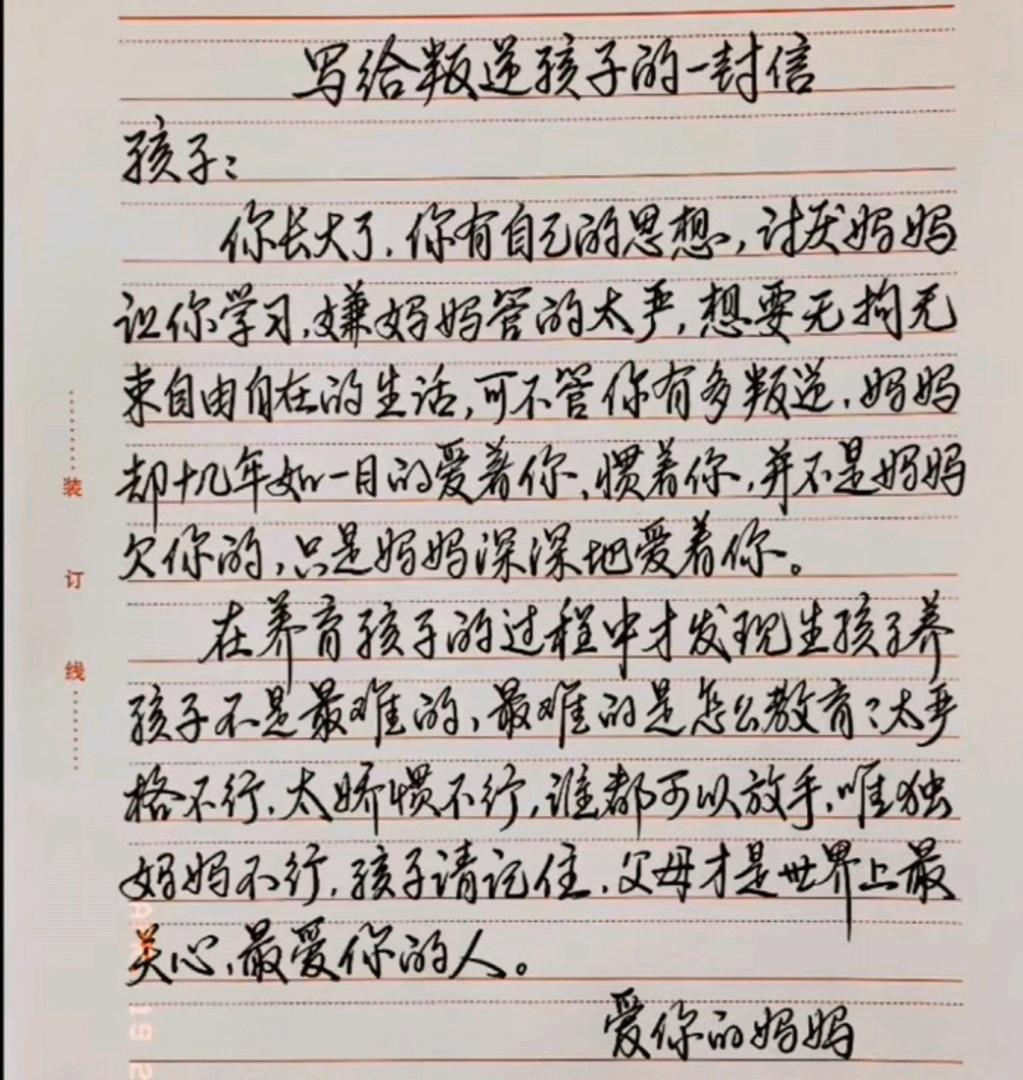 写给叛逆孩子的一封信
孩子：
你长大了，你有自己的思想，讨厌妈妈
让你学习，嫌妈妈管的太严，想要无拘无
束自由自在的生活，可不管你有多叛逆，妈妈
却十几年如一日的爱着你、惯着你，并不是妈妈
欠你的，只是妈妈深深地爱着你。
在养育孩子的过程中才发现生孩子养
孩子不是最难的，最难的是怎么教育？太严
格不行，太娇惯不行，谁都可以放手，唯独
妈妈不行，孩子请记住，父母才是世界上最
关心、最爱你的人。
爱你的妈妈
装
订
线